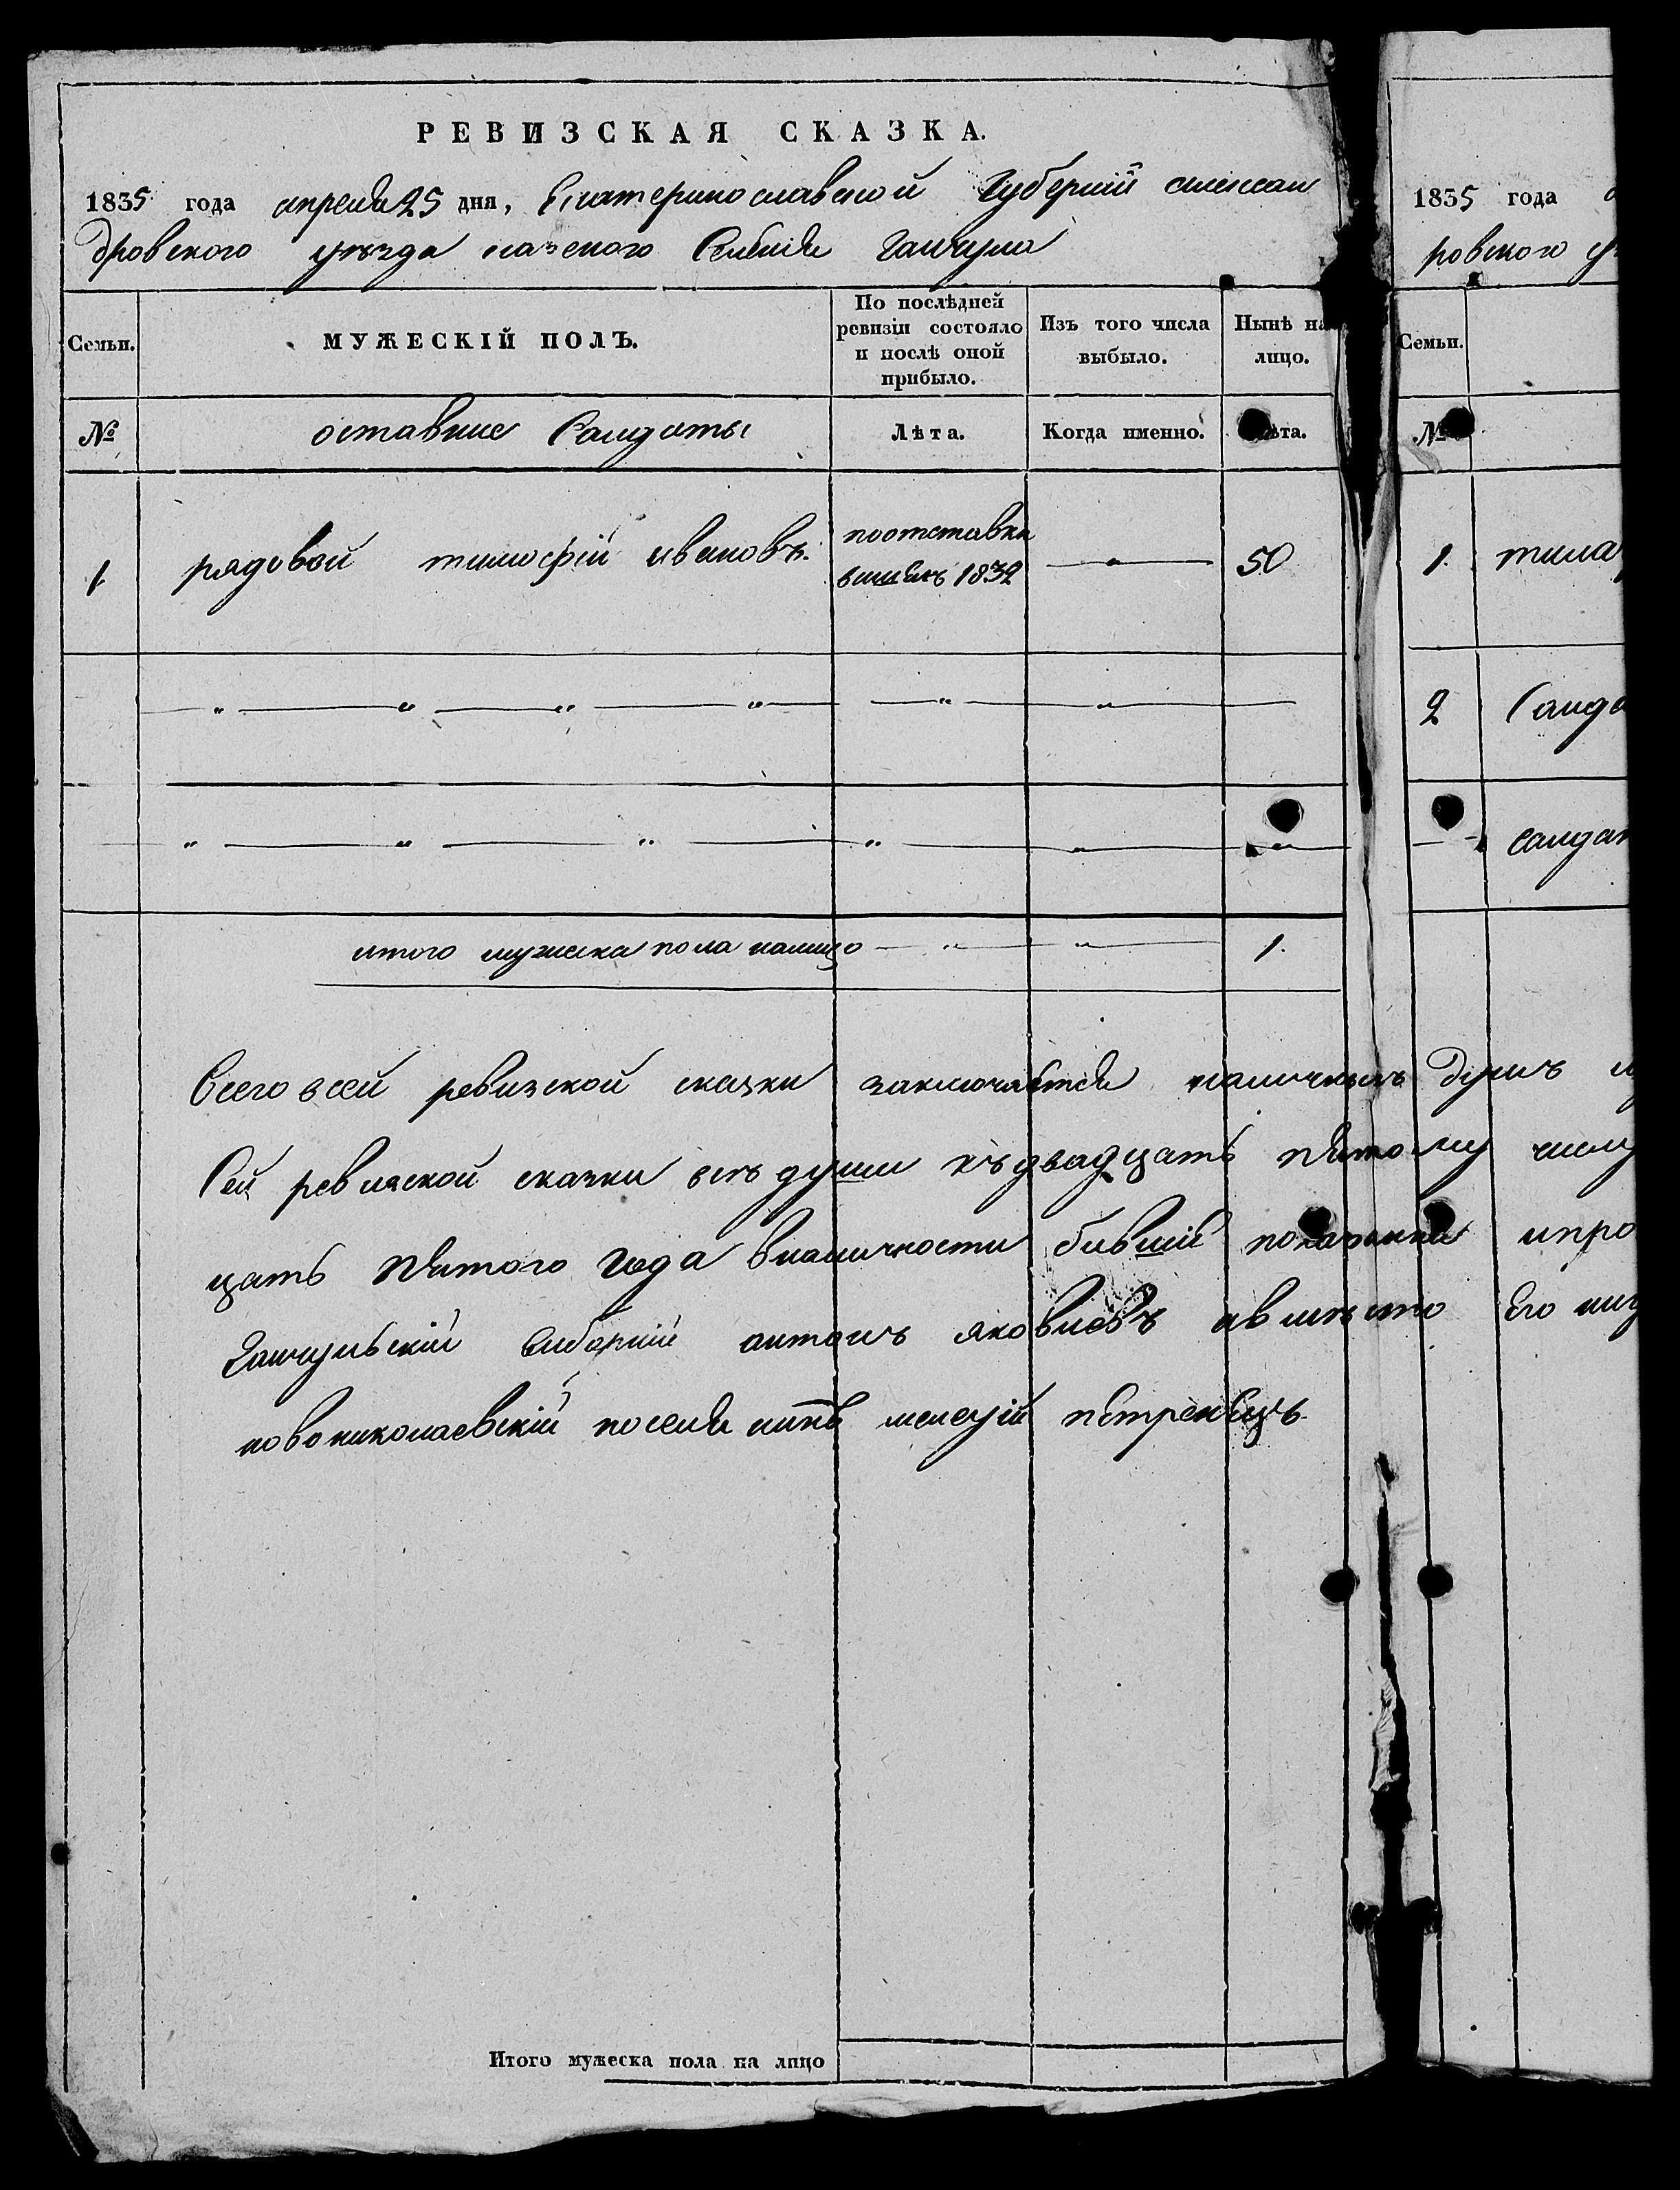 РЕВИЗСКАЯ СКАЗКА.
1835 года апреля 25 дня, Екатеринославской Губерний алексан
дровского уезда казеного Селения Гайчула
Семьи.
МУЖЕСКІЙ ПОЛЪ.
По послѣдней
ревизіи состояло
и послѣ оной
прибыло.
Изъ того числа
выбыло.
Нынѣ на
лицо.
№
оставние Салдаты
Лѣта.
Когда именно.
Лѣта.
1. рядовой тимофій ивановъ. поотставки 50
вишелъ 1832
итого мужеска пола налицо 1.
Всего всей ревизской сказки заключается наличныхъ душъ
Сей ревизской сказки всѣ души къ двадцать пятому числу
цать пятого года вналичности бивший показаны и про
Гайчульскій виборний антонъ яковлевъ а вместо Его
новониколаевскій поселянинъ мелетій петренецъ.
Итого мужеска пола на лицо
1835 года
ровского у
Семьи.
№
1.
2 Салда
салдат